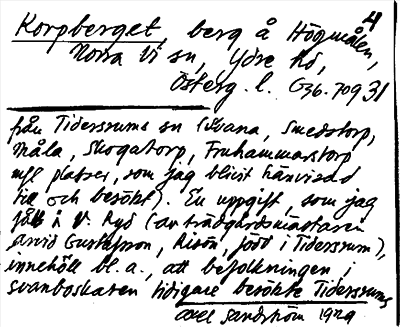 4
Korpberget, berg å Högmålen,
Norra Vi sn, Ydre hd,
Österg. l. G36.709 31
från Tidersrums sn (Svana, Smedstorp,
Måla, Skogatorp, Fruhammarstorp
mfl platser, som jag blivit hänvisad
till och besökt). En uppgift, som jag
fått i V. Ryd (av trädgårdsmästaren
Arvid Gustafsson, Kisön, född i Tidersrum),
innehöll bl.a., att befolkningen i
Svanboskaten tidigare besökte Tidersrums
Axel Sandström 1929